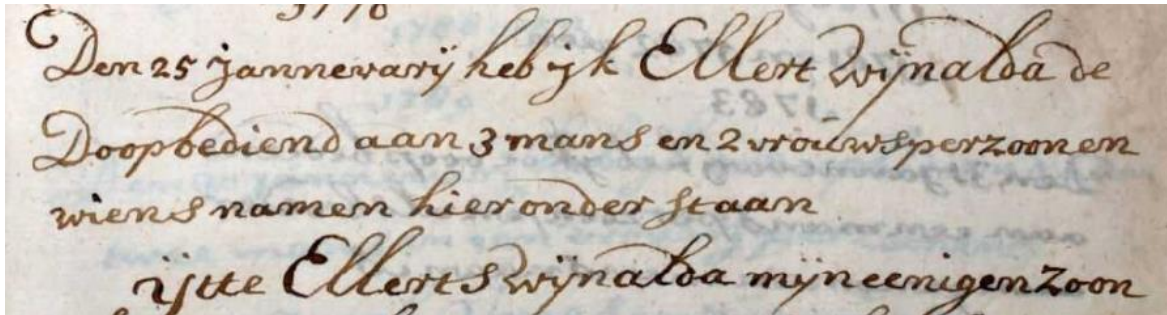 1778
Den 25 jannevarÿ heb ijk Ellert Wÿnalda de
Doop bediend aan 3 mans en 2 vrouwsperzoonen
wiens namen hier onder staan
ijtte Ellerts Wÿnalda mÿn eenigen zoon